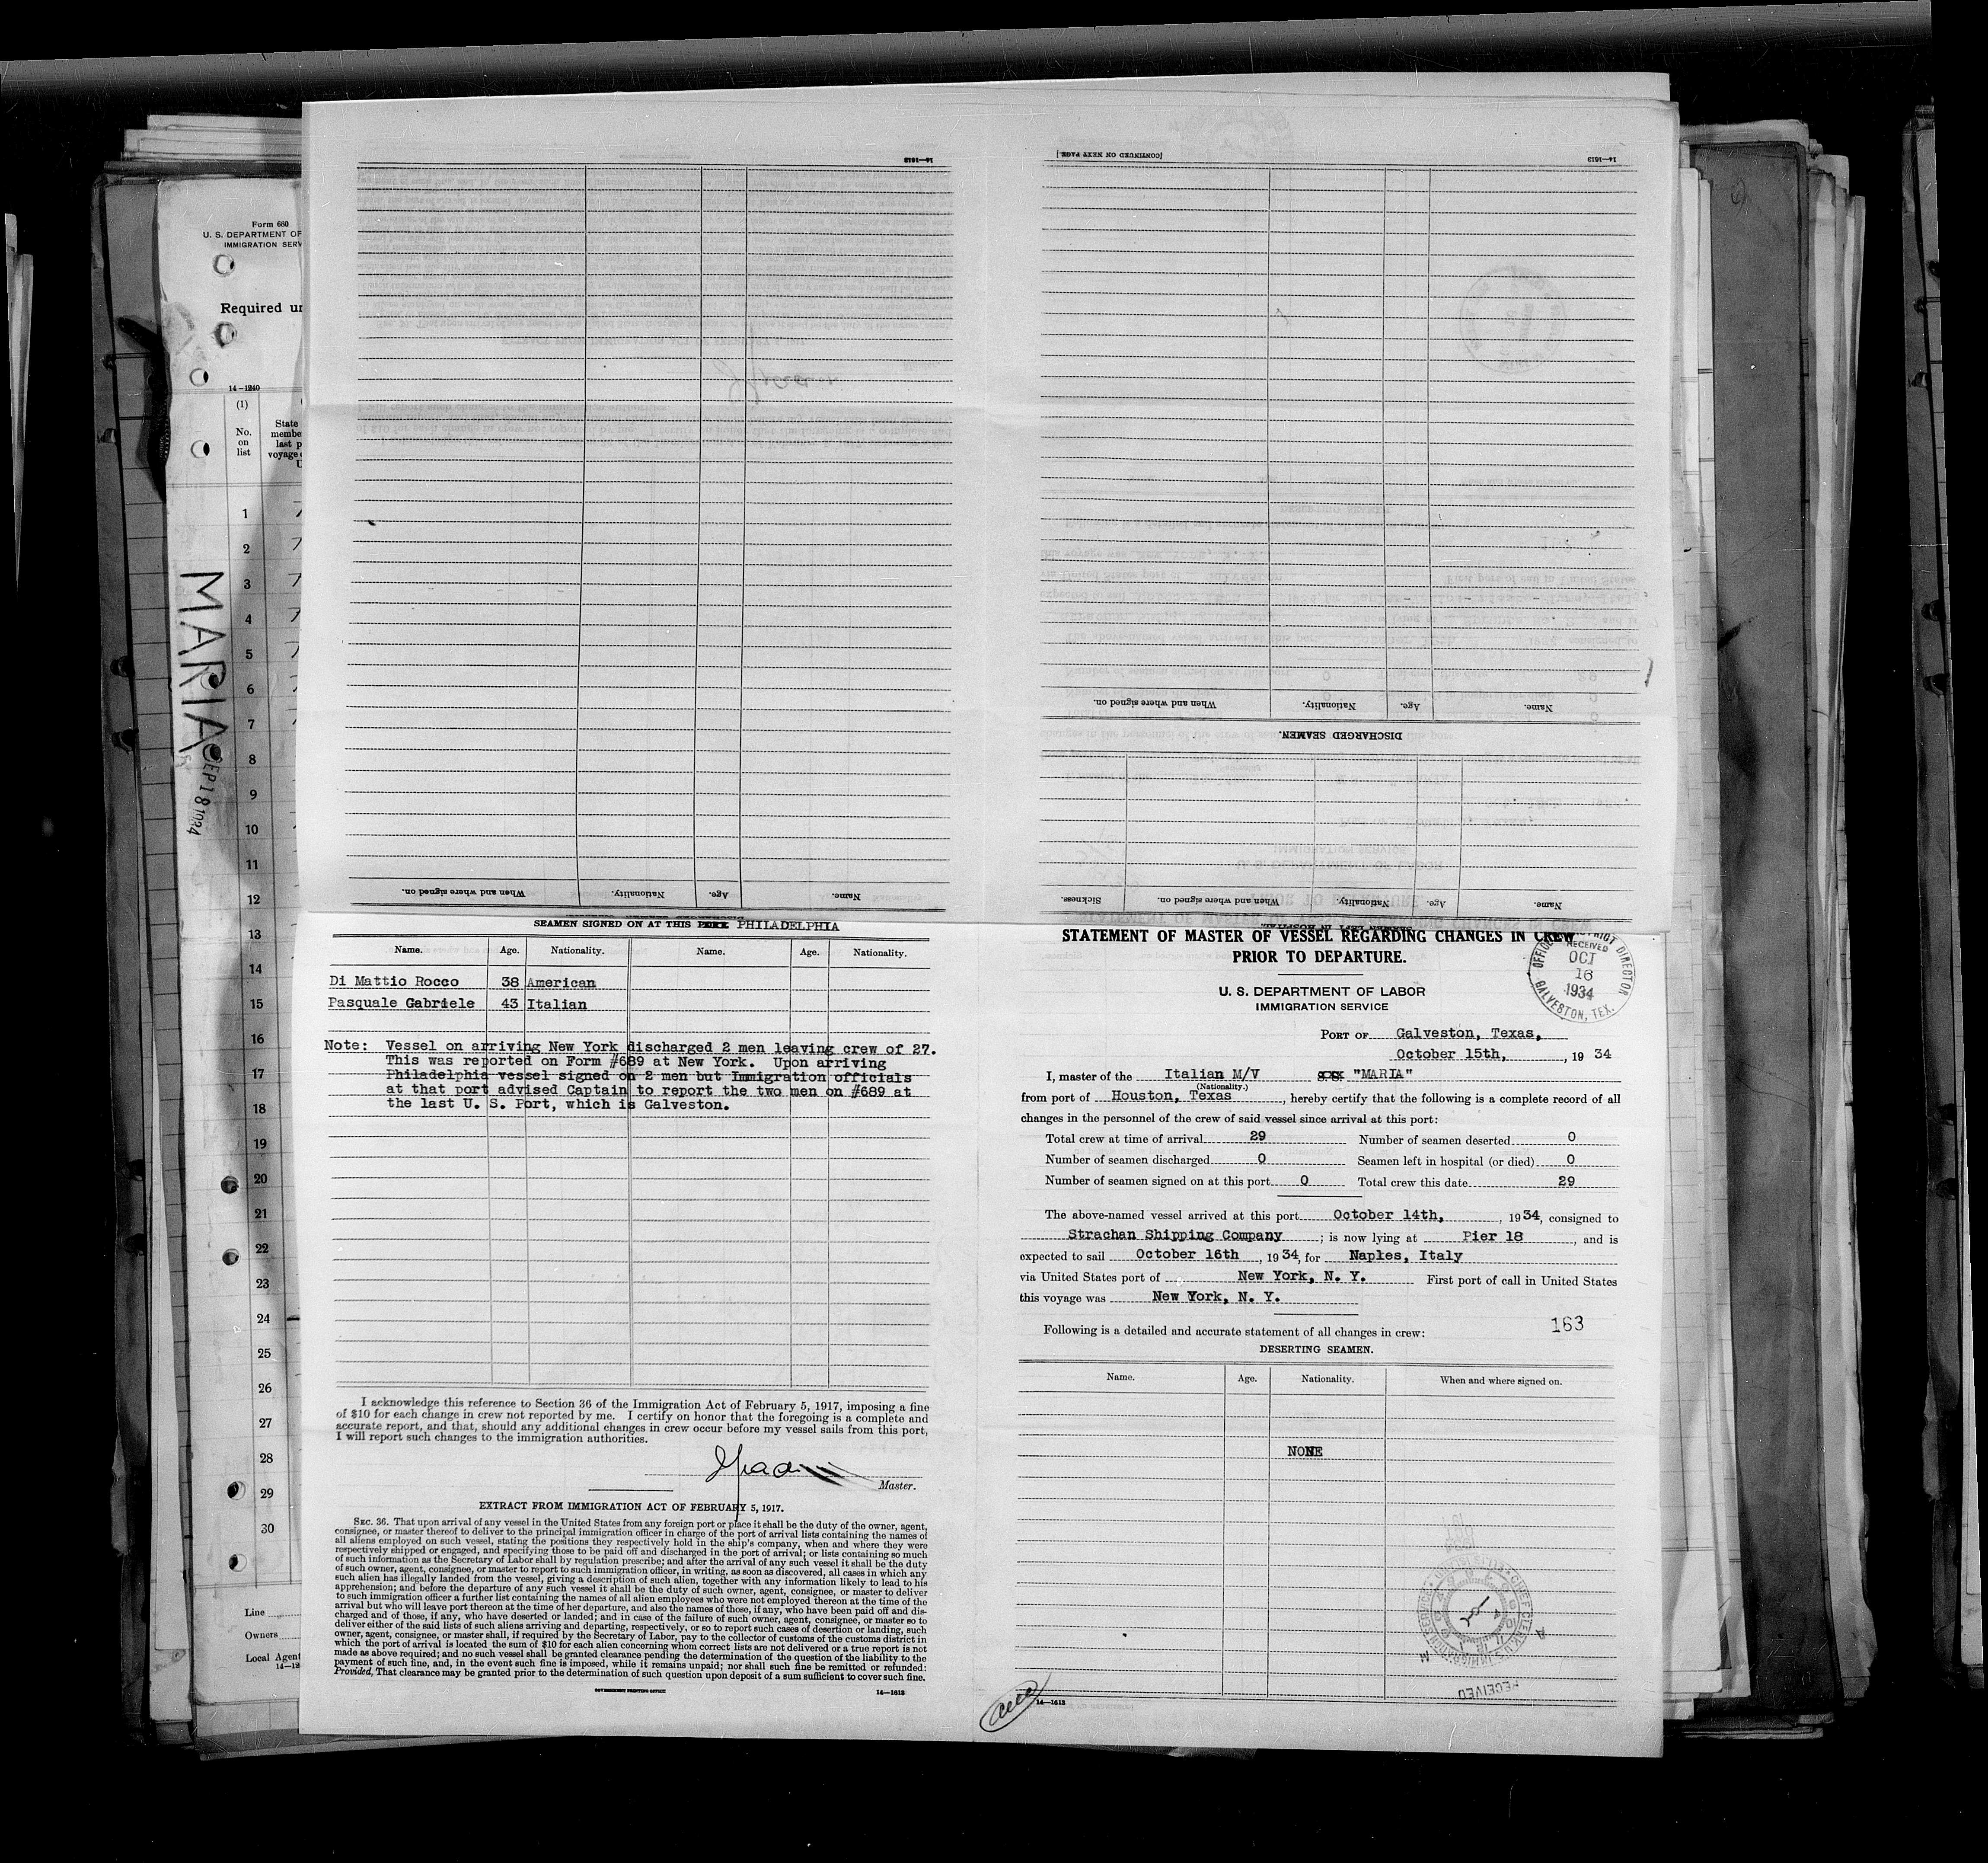 Form 680
U. S. DEPARTMENT OF
IMMIGRATION SERV
Required un
14-1240
(1)
No.
on
list
State
membe
last p
voyage
U
1
2
3
4
5
6
7
8
9
10
11
12
13
14
15
16
17
18
19
20
21
22
23
24
25
26
27
28
29
30
Line
Owners
Local Agent
MARIA
SEP 18 1934
14—1613
When and where signed on. Nationality. Age. Name.
[CONTINUED ON NEXT PAGE]
14—1613
When and where signed on. Nationality. Age. Name.
DISCHARGED SEAMEN.
Sickness. When and where signed on. Nationality. Age. Name.
SEAMEN LEFT IN HOSPITAL.
SEAMEN SIGNED ON AT THIS PORT PHILADELPHIA
Name. Age. Nationality. Name. Age. Nationality.
Di Mattio Rocco 38 American
Pasquale Gabriele 43 Italian
Note: Vessel on arriving New York discharged 2 men leaving crew of 27.
This was reported on Form #689 at New York. Upon arriving
Philadelphia vessel signed on 2 men but Immigration officials
at that port advised Captain to report the two men on #689 at
the last U. S. Port, which is Galveston.
I acknowledge this reference to Section 36 of the Immigration Act of February 5, 1917, imposing a fine
of $10 for each change in crew not reported by me. I certify on honor that the foregoing is a complete and
accurate report, and that, should any additional changes in crew occur before my vessel sails from this port,
I will report such changes to the immigration authorities.
Master.
EXTRACT FROM IMMIGRATION ACT OF FEBRUARY 5, 1917.
SEC. 36. That upon arrival of any vessel in the United States from any foreign port or place it shall be the duty of the owner, agent,
consignee, or master thereof to deliver to the principal immigration officer in charge of the port of arrival lists containing the names of
all aliens employed on such vessel, stating the positions they respectively hold in the ship's company, when and where they were
respectively shipped or engaged, and specifying those to be paid off and discharged in the port of arrival; or lists containing so much
of such information as the Secretary of Labor shall by regulation prescribe; and after the arrival of any such vessel it shall be the duty
of such owner, agent, consignee, or master to report to such immigration officer, in writing, as soon as discovered, all cases in which any
such alien has illegally landed from the vessel, giving a description of such alien, together with any information likely to lead to his
apprehension; and before the departure of any such vessel it shall be the duty of such owner, agent, consignee, or master to deliver
to such immigration officer a further list containing the names of all alien employees who were not employed thereon at the time of the
arrival but who will leave port thereon at the time of her departure, and also the names of those, if any, who have been paid off and dis-
charged and of those, if any, who have deserted or landed; and in case of the failure of such owner, agent, consignee, or master so to
deliver either of the said lists of such aliens arriving and departing, respectively, or so to report such cases of desertion or landing, such
owner, agent, consignee, or master shall, if required by the Secretary of Labor, pay to the collector of customs of the customs district in
which the port of arrival is located the sum of $10 for each alien concerning whom correct lists are not delivered or a true report is not
made as above required; and no such vessel shall be granted clearance pending the determination of the question of the liability to the
payment of such fine, and, in the event such fine is imposed, while it remains unpaid; nor shall such fine be remitted or refunded:
Provided, That clearance may be granted prior to the determination of such question upon deposit of a sum sufficient to cover such fine.
GOVERNMENT PRINTING OFFICE 14—1613
STATEMENT OF MASTER OF VESSEL REGARDING CHANGES IN CREW
PRIOR TO DEPARTURE.
U. S. DEPARTMENT OF LABOR
IMMIGRATION SERVICE
OFFICE DISTRICT DIRECTOR
RECEIVED
OCT
16
1934
GALVESTON, TEX.
PORT OF Galveston, Texas,
October 15th, , 19 34
I, master of the Italian M/V xxx "MARIA"
(Nationality.)
from port of Houston, Texas , hereby certify that the following is a complete record of all
changes in the personnel of the crew of said vessel since arrival at this port:
Total crew at time of arrival 29 Number of seamen deserted 0
Number of seamen discharged 0 Seamen left in hospital (or died) 0
Number of seamen signed on at this port 0 Total crew this date 29
The above-named vessel arrived at this port October 14th, , 1934, consigned to
Strachan Shipping Company ; is now lying at Pier 18 , and is
expected to sail October 16th , 1934, for Naples, Italy
via United States port of New York, N. Y. First port of call in United States
this voyage was New York, N. Y.
163
Following is a detailed and accurate statement of all changes in crew:
DESERTING SEAMEN.
Name. Age. Nationality. When and where signed on.
NONE
RECEIVED
14—1613